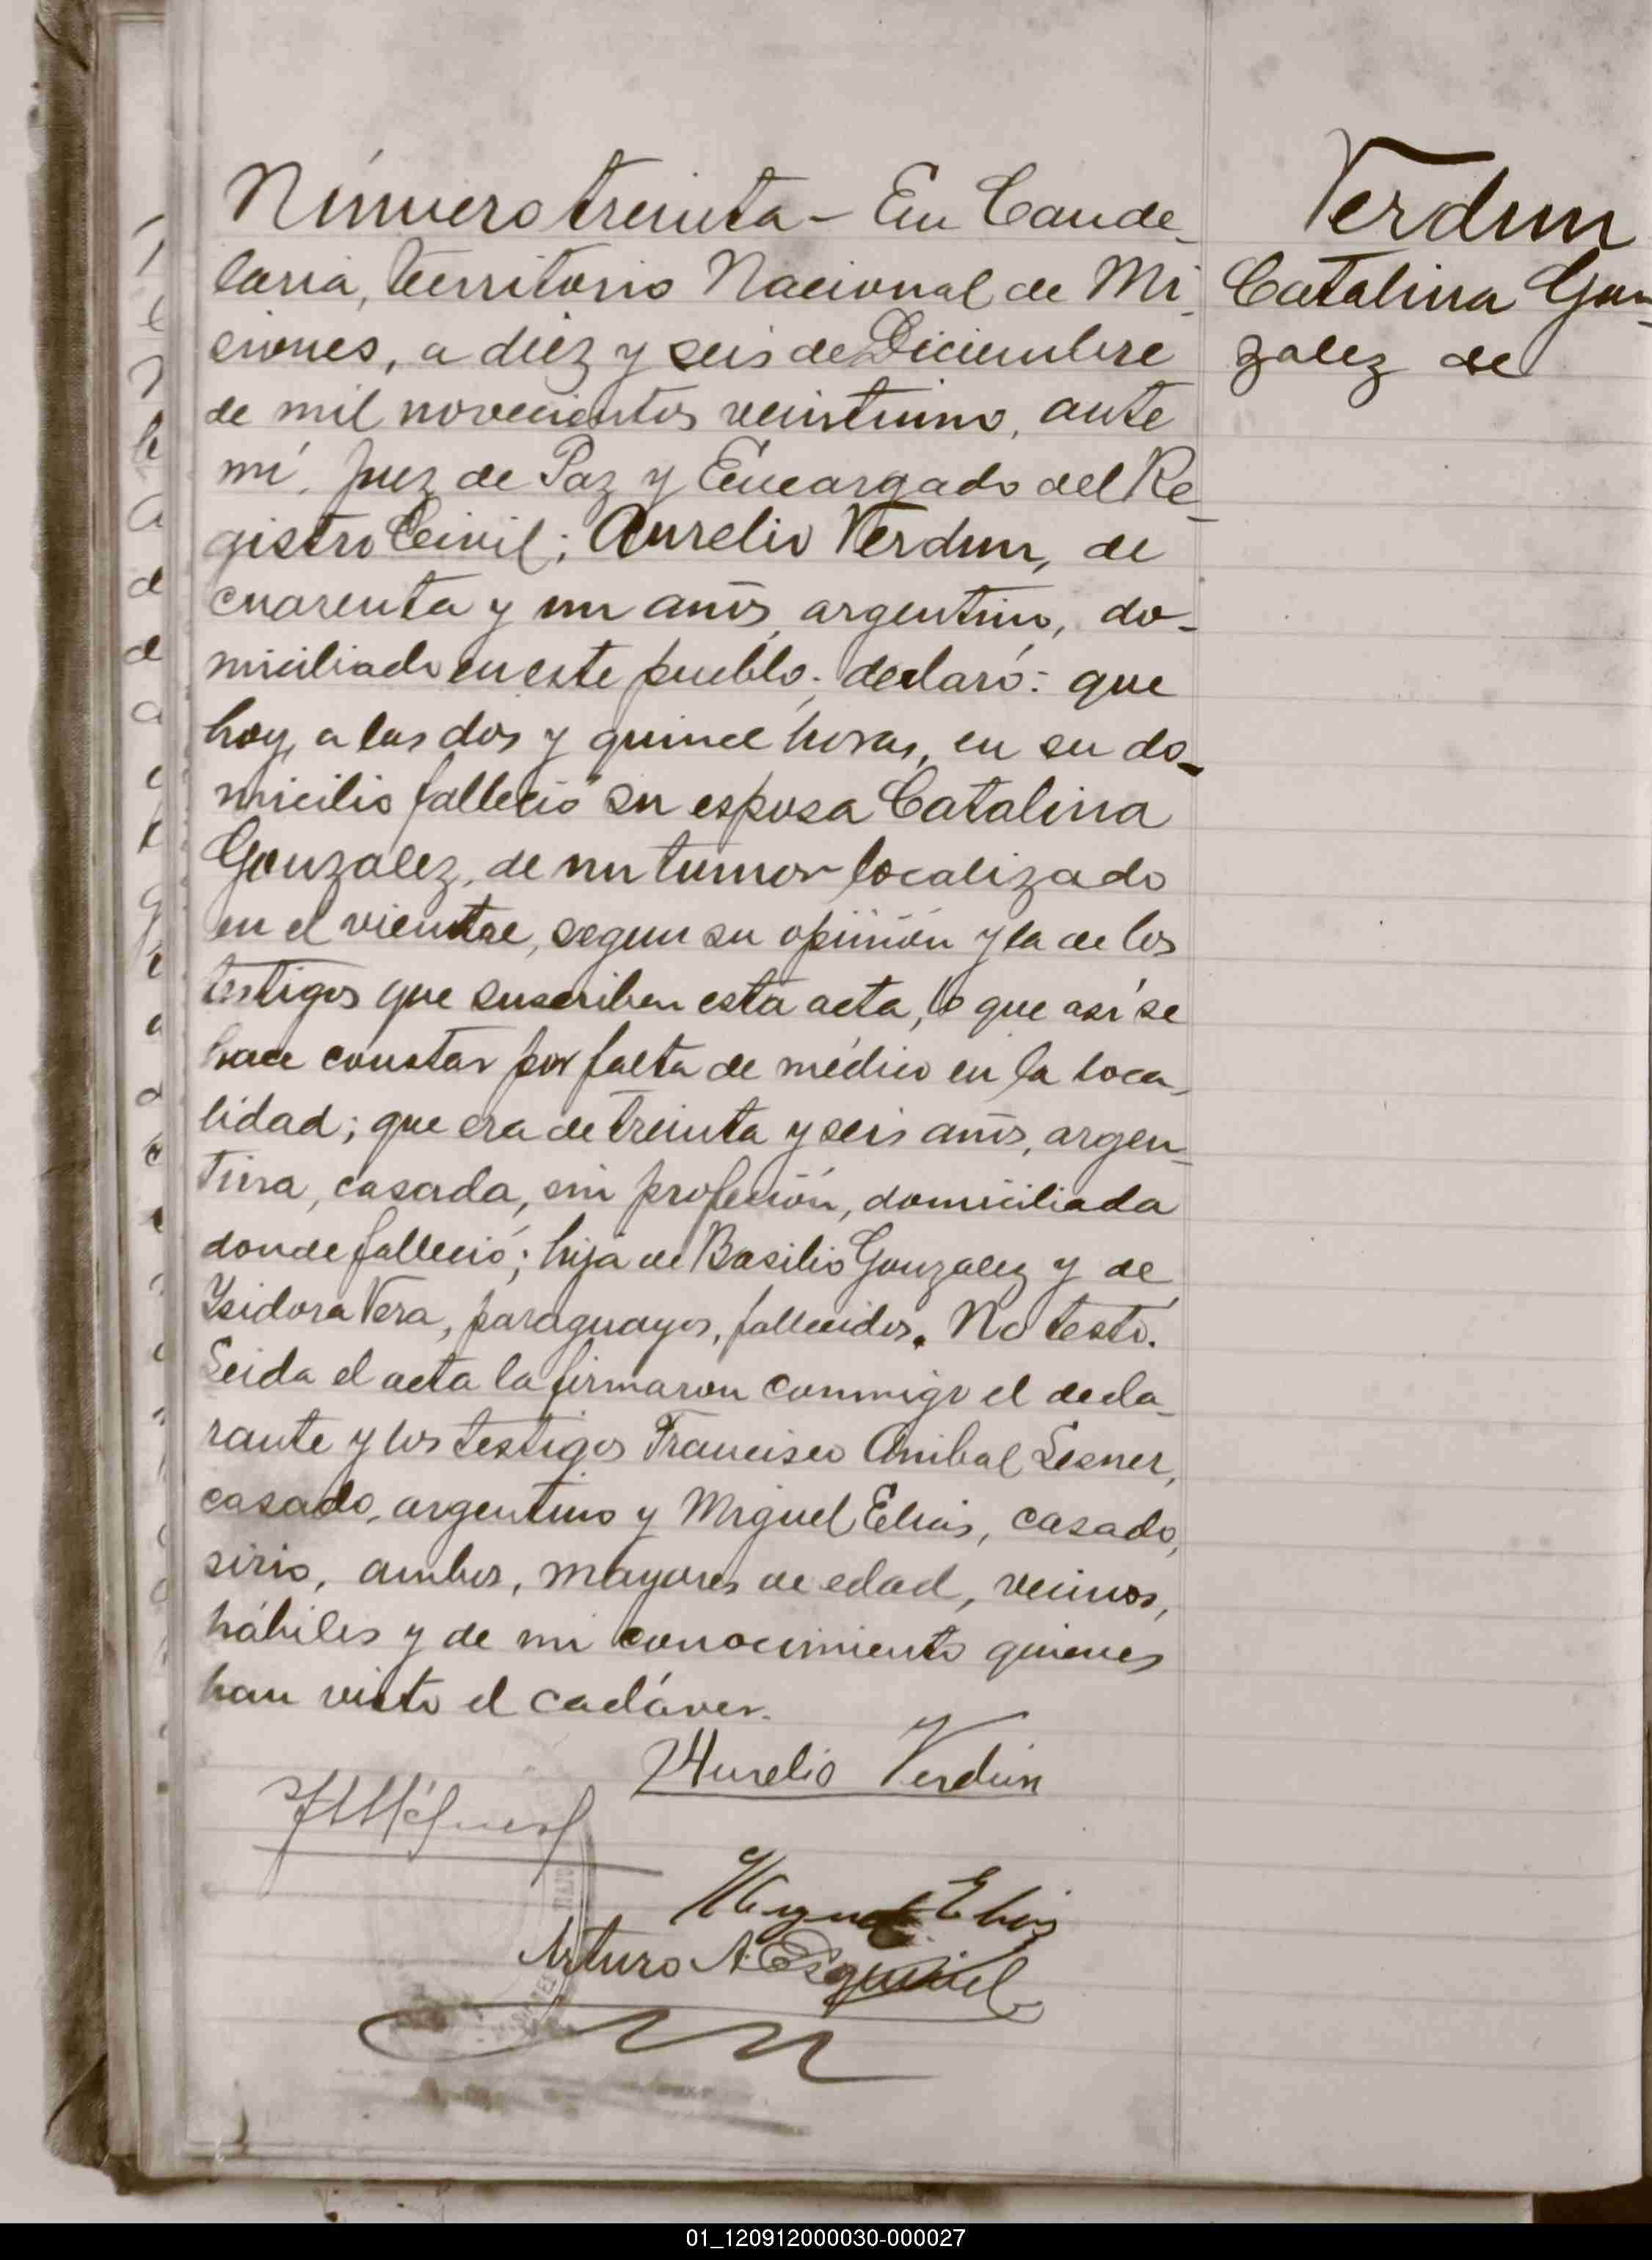 Número treinta - En Cande-
laria, Territorio Nacional de Mi-
siones, a diez y seis de Diciembre
de mil novecientos veintiuno, ante
mí, Juez de Paz y Encargado del Re-
gistro Civil; Aurelio Verdun, de
cuarenta y un años, argentino, do-
miciliado en este pueblo; declaró: que
hoy, a las dos y quince horas, en su do-
micilio falleció su esposa Catalina
Gonzalez, de un tumor localizado
en el vientre, segun su opinión y la de los
testigos que suscriben esta acta, lo que así se
hace constar por falta de médico en la loca-
lidad; que era de treinta y seis años, argen-
tina, casada, sin profesión, domiciliada
donde falleció; hija de Basilio Gonzalez y de
Ysidora Vera, paraguayos, fallecidos. No testó.
Leida el acta la firmaron conmigo el decla-
rante y los testigos Francisco Anibal Lesner,
casado, argentino y Miguel Elias, casado,
sirio, ambos, mayores de edad, vecinos,
hábiles y de mi conocimiento quienes
han visto el cadáver.
Verdun
Catalina Gon-
zalez de
Aurelio Verdun
Miguel Elias
Arturo A. Esquivel
01_120912000030-000027